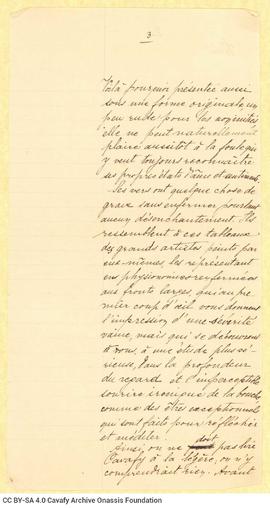 3
Voilà pourquoi présentée aussi
sous une forme originale, un
peu rude pour les
elle ne peut naturellement
plaire aussitôt à la foule qui
y veut toujours reconnaître
ses propres états d'âme et sentiments.
Ses vers ont quelque chose de
grave sans enfermer pourtant
aucun désenchantement. Ils
ressemblent à ces tableaux
des grands artistes peints par
eux-mêmes, les représentant
en physionomies renfermées
aux fronts larges, qui au pre-
mier coup d'œil vous donnent
l'impression d'une sévérité
vaine, mais qui se découvrent
à vous, à une étude plus sé-
rieuse, dans la profondeur
du regard et l'imperceptible
sourire ironique de la bouche
comme des êtres exceptionnels
qui sont faits pour réfléchir
et
Ainsi, on ne doit pas lire
Cavafy à la légère, on n'y
comprendrait rien. Avant
CC BY-SA 4.0 Cavafy Archive Onassis Foundation